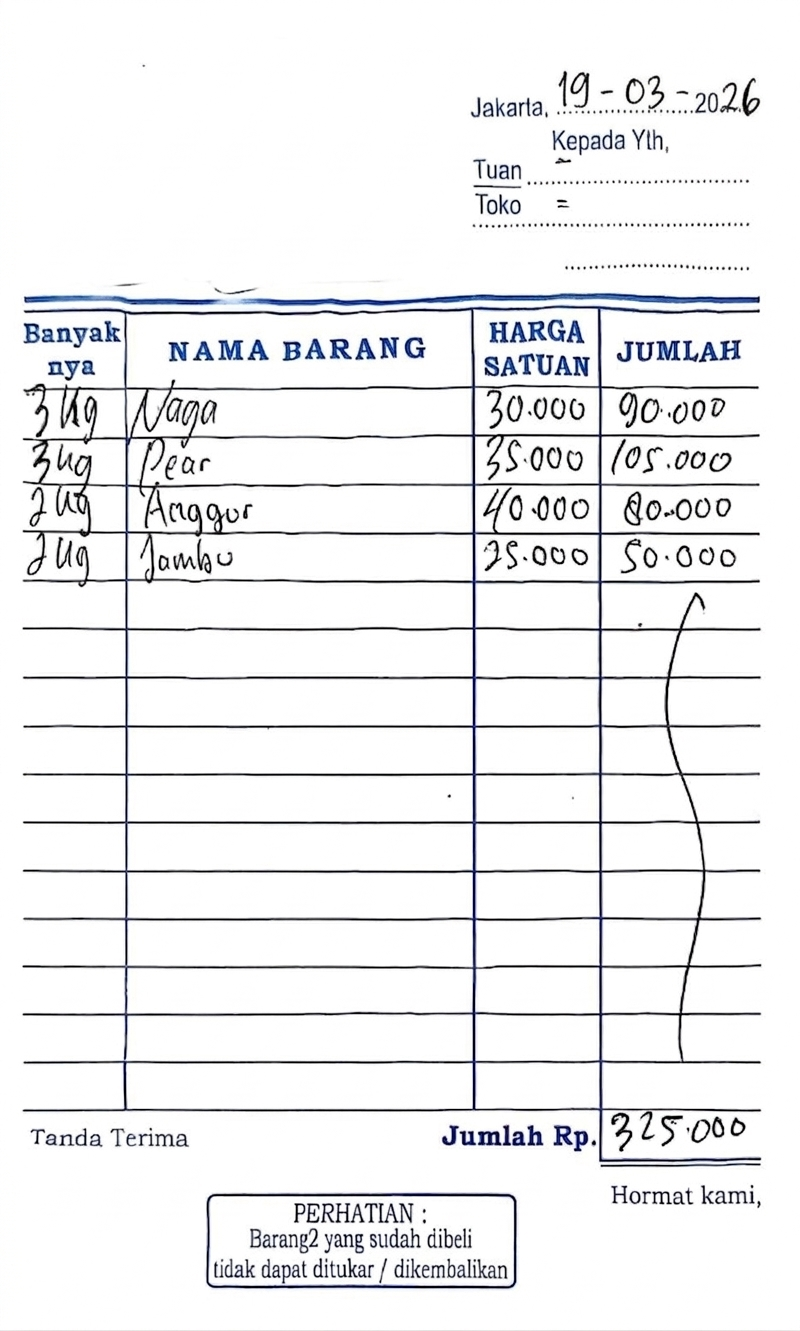 Jakarta, 19-03-2026
Kepada Yth,
Tuan -
Toko =
Banyak nya NAMA BARANG HARGA SATUAN JUMLAH
3 kg Naga 30.000 90.000
3 kg Pear 35.000 105.000
2 kg Anggur 40.000 80.000
2 kg Jambu 25.000 50.000
Tanda Terima Jumlah Rp. 325.000
Hormat kami,
PERHATIAN :
Barang2 yang sudah dibeli
tidak dapat ditukar / dikembalikan